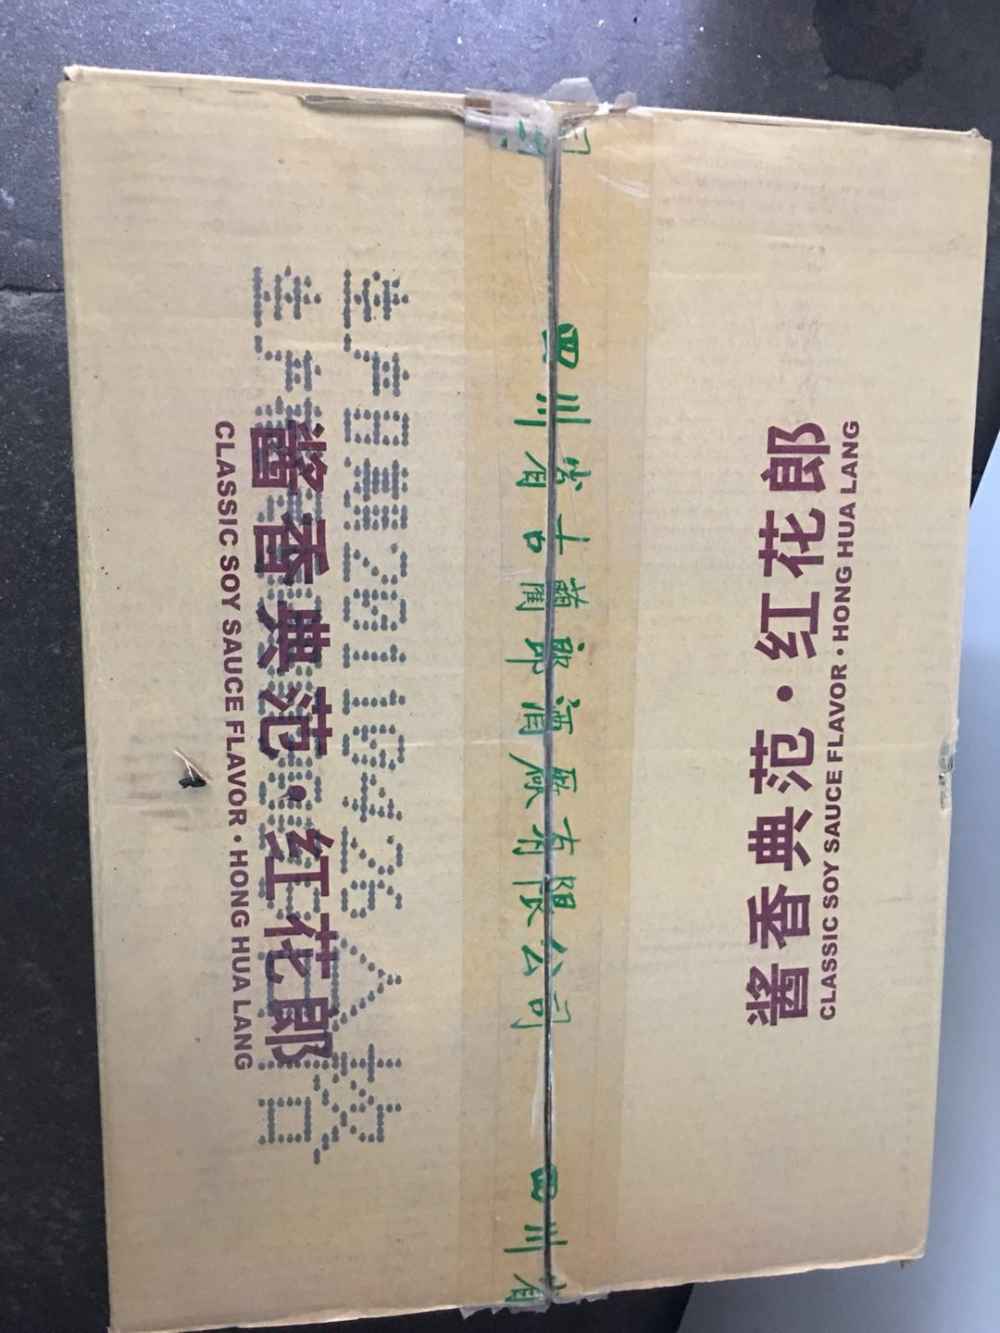 酱香典范·红花郎
CLASSIC SOY SAUCE FLAVOR·HONG HUA LANG
司
四川省古藺郎酒厰有限公司
四川省
生产日期20110426
合格
酱香典范·红花郎
CLASSIC SOY SAUCE FLAVOR·HONG HUA LANG